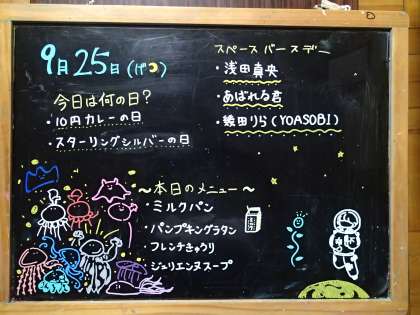 9月25日(げつ)
今日は何の日?
・10円カレーの日
・スターリングシルバーの日
スペースバースデー
・浅田真央
・あばれる君
・幾田りら(YOASOBI)
～本日のメニュー～
・ミルクパン
・パンプキングラタン
・フレンチきゅうり
・ジュリエンヌスープ